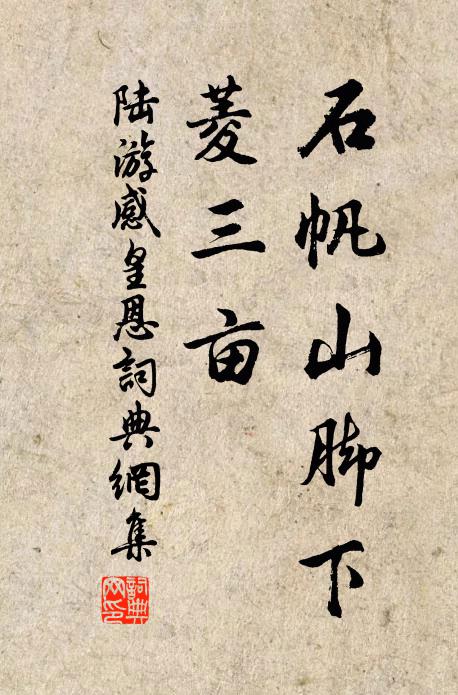 石帆山脚下
菱三亩
陆游感皇恩詞典網集
詞典